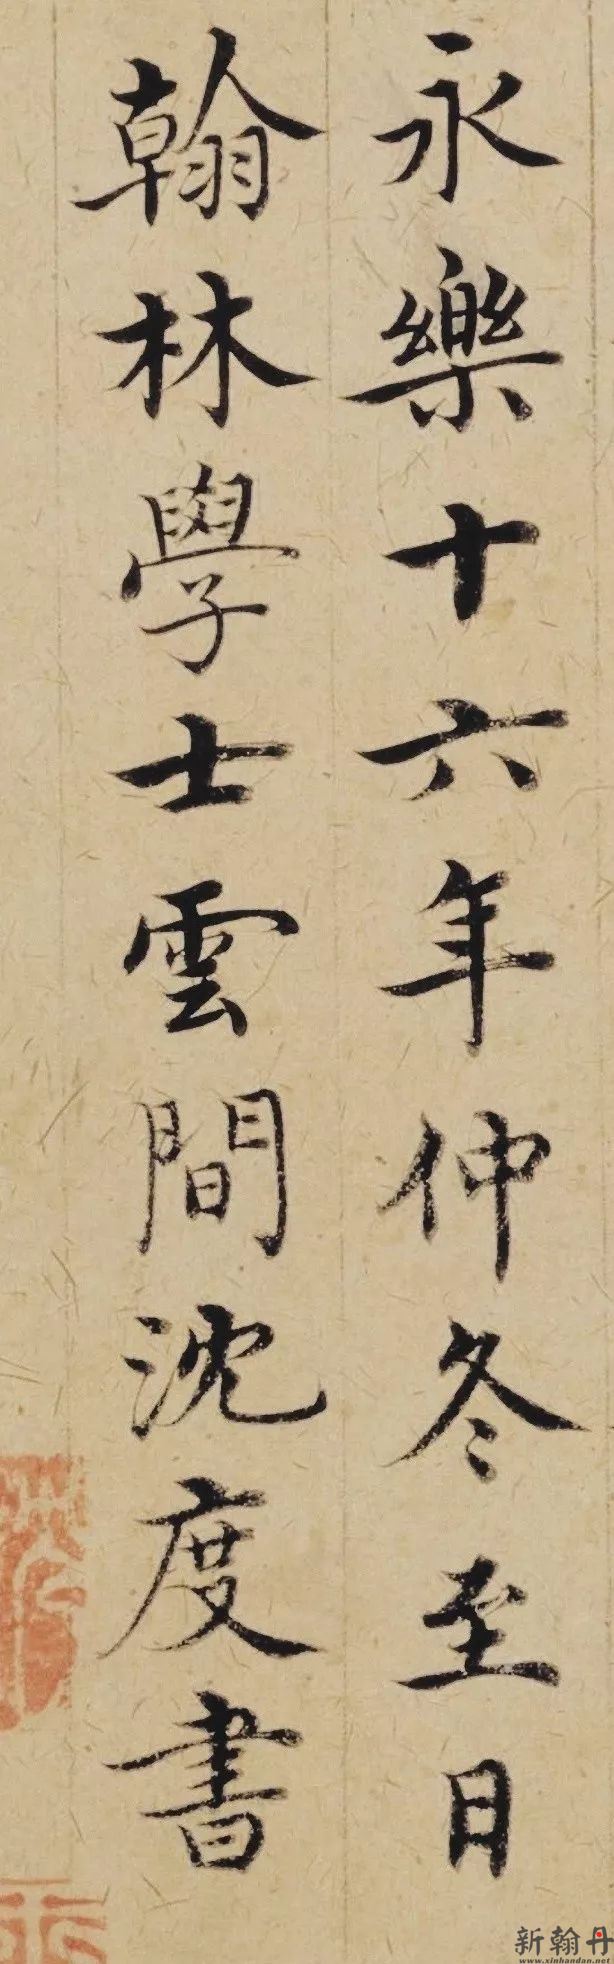 永樂十六年仲冬至日
翰林學士雲間沈度書
新翰丹
www.xinhandan.net